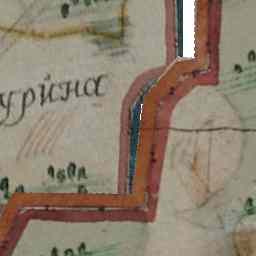 урина